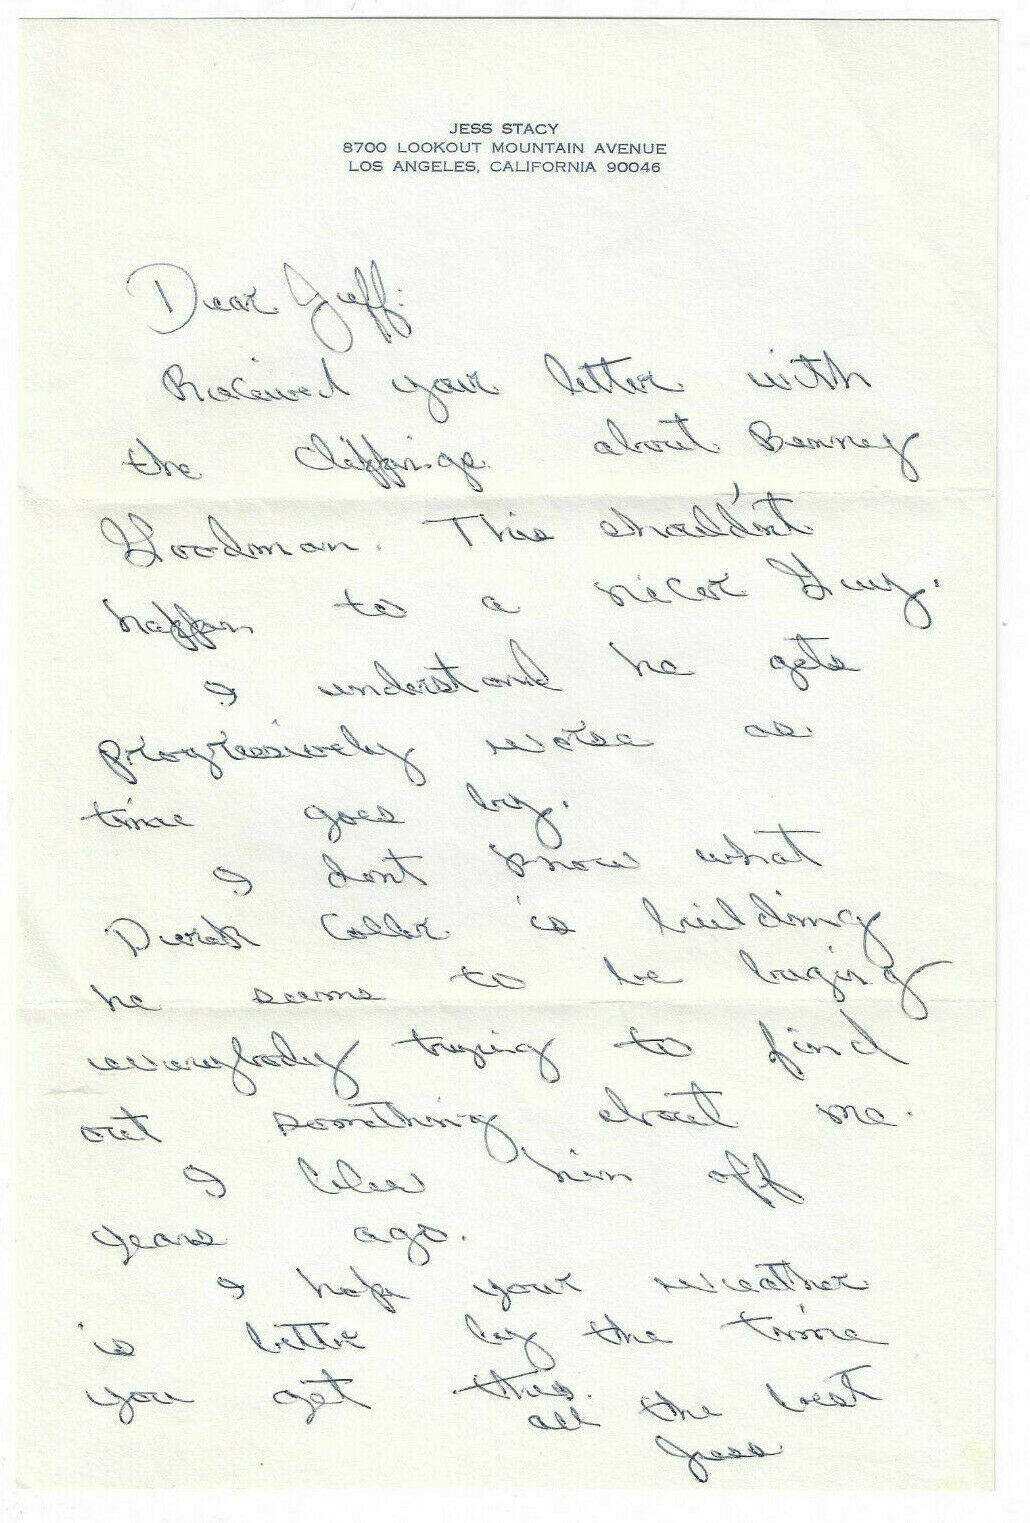 JESS STACY
8700 LOOKOUT MOUNTAIN AVENUE
LOS ANGELES, CALIFORNIA 90046
Dear Jeff:
Received your letter with
the clippings about Benney
Goodman. This shouldn't
happen to a nicer Guy.
I understand he gets
progressively worse as
time goes by.
I dont know what
Derek Coller is building
he seems to be buging
everybody trying to find
out something about me.
I blew him off
years ago.
I hope your weather
is better by the time
you get this.
all the best
Jess